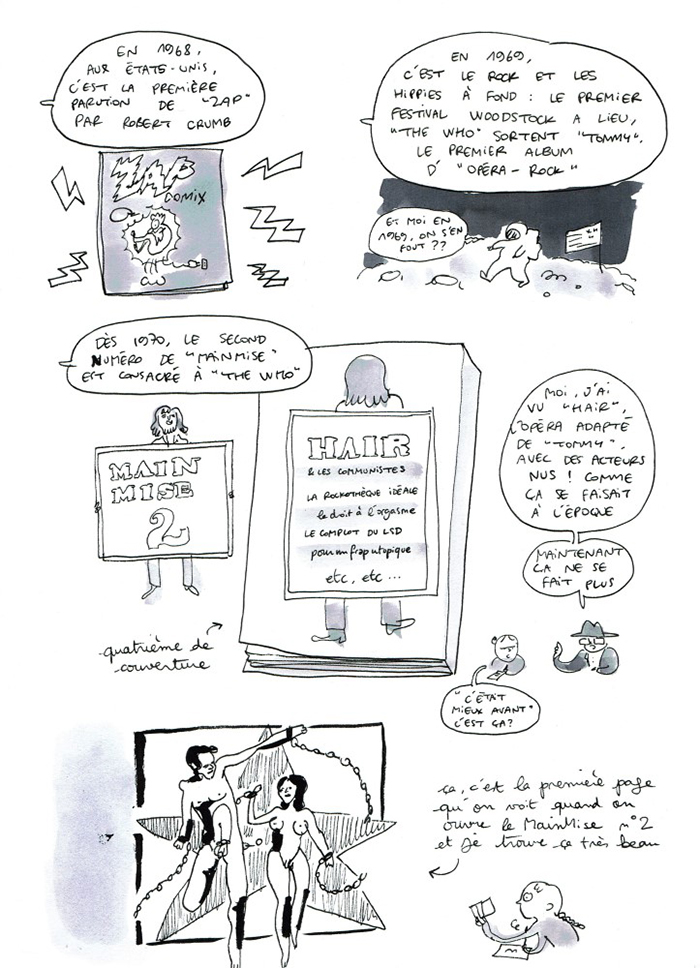 EN 1968,
AUX ÉTATS-UNIS,
C'EST LA PREMIÈRE
PARUTION DE "ZAP"
PAR ROBERT CRUMB
ZAP
COMIX
EN 1969,
C'EST LE ROCK ET LES
HIPPIES À FOND : LE PREMIER
FESTIVAL WOODSTOCK A LIEU,
"THE WHO" SORTENT "TOMMY".
LE PREMIER ALBUM
D' "OPÉRA-ROCK"
ET MOI EN
1969, ON S'EN
FOUT ??
DÈS 1970, LE SECOND
NUMÉRO DE "MAINMISE"
EST CONSACRÉ À "THE WHO"
MAIN
MISE
2
HAIR
& LES COMMUNISTES
LA ROCKOTHÈQUE IDÉALE
le droit à l'orgasme
LE COMPLOT DU LSD
pour un frap utopique
etc, etc ...
quatrième de
couverture
MOI, J'AI
VU "HAIR",
L'OPÉRA ADAPTÉ
DE "TOMMY",
AVEC DES ACTEURS
NUS ! COMME
ÇA SE FAISAIT
À L'ÉPOQUE
MAINTENANT
ÇA NE SE
FAIT PLUS
"C'ÉTAIT
MIEUX AVANT"
C'EST ÇA ?
ça, c'est la première page
qu'on voit quand on
ouvre le MainMise n°2
et je trouve ça très beau